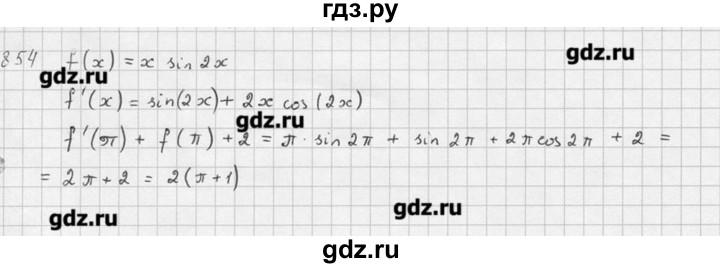 гдз.ру
854 f(x) = x sin 2x
gdz.ru
gdz.ru
f'(x) = sin(2x) + 2x cos(2x)
gdz.ru
f'(π) + f(π) + 2 = π · sin 2π + sin 2π + 2π cos 2π + 2 =
= 2π + 2 = 2(π+1)
gdz.ru
gdz.ru
gdz.ru